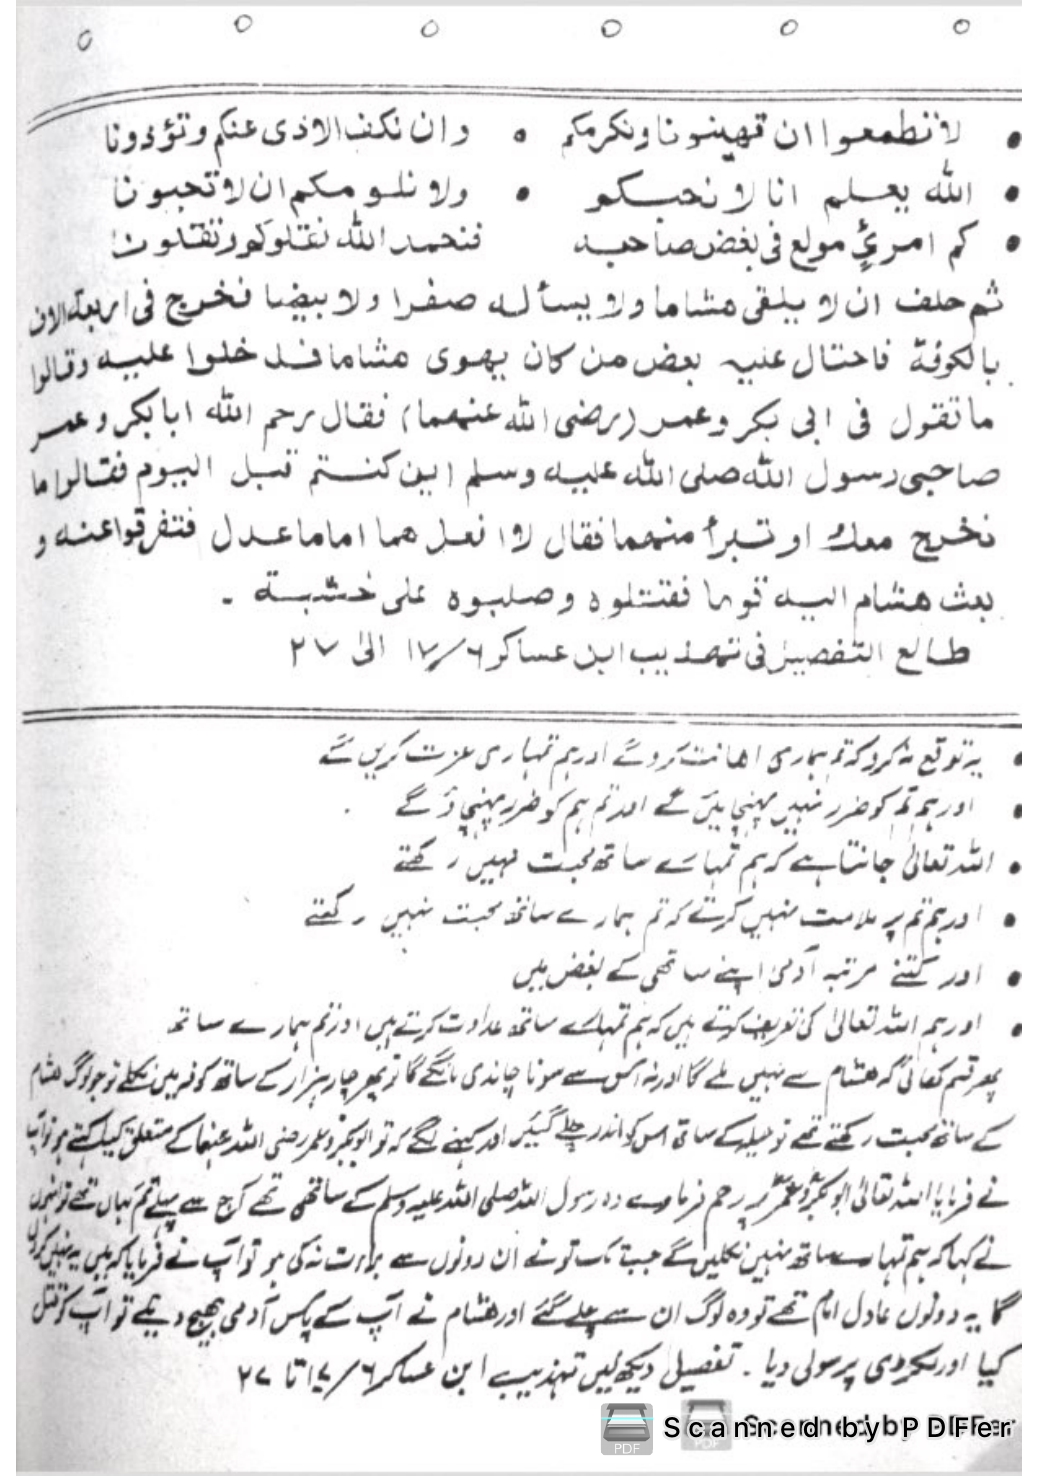 لا تطمعوا ان تهينونا ونكرمكم • وان نكف الاذى عنكم وتؤذونا
الله يعلم انا لا نحبكم • ولا نلومكم ان لا تحبونا
كم امرئٍ مولع فى بغض صاحبه فنحمد الله نقلوكم وتقلونا
ثم حلف ان لا يلقى هشاما ولا يسأله صفرا ولا بيضا فخرج فى اربعة الاف
بالكوفة فاحتال عليه بعض من كان يهوى هشاما فدخلوا عليه وقالوا
ما تقول فى ابى بكر وعمر (رضى الله عنهما) فقال رحم الله ابا بكر وعمر
صاحبى رسول الله صلى الله عليه وسلم اين كنتم قبل اليوم فقالوا ما
نخرج معك او تتبرأ منهما فقال لا افعل هما اماما عدل فتفرقوا عنه و
بعث هشام اليه قوما فقتلوه وصلبوه على خشبة ۔
طالع التفصيل فى تهذيب ابن عساكر ۶/۱۷ الى ۲۷
یہ توقع نہ کرو کہ تم ہماری اھانت کروگے اور ہم تمہاری عزت کریں گے
اور ہم تم کو ضرر نہیں پہنچائیں گے اور تم ہم کو ضرر پہنچاؤ گے
اللہ تعالیٰ جانتا ہے کہ ہم تمہارے ساتھ محبت نہیں رکھتے
اور ہم تم پر ملامت نہیں کرتے کہ تم ہمارے ساتھ محبت نہیں رکھتے
اور کتنے مرتبہ آدمی اپنے ساتھی کے بغض میں
اور ہم اللہ تعالیٰ کی تعریف کرتے ہیں کہ ہم تمہارے ساتھ عداوت کرتے ہیں اور تم ہمارے ساتھ
پھر قسم کھائی کہ ھشام سے نہیں ملے گا اور نہ اس سے سونا چاندی مانگے گا تو پھر چار ہزار کے ساتھ کوفہ میں نکلے تو جو لوگ ھشام
کے ساتھ محبت رکھتے تھے تو حیلہ کے ساتھ اس کو اندر چلے گئیں اور کہنے لگے کہ تو ابوبکر و عمر رضی اللہ عنھما کے متعلق کیا کہتے ہو تو آپ
نے فرمایا اللہ تعالیٰ ابوبکرؓ و عمرؓ پر رحم فرماوے وہ رسول اللہ صلی اللہ علیہ وسلم کے ساتھی تھے کہ آج سے پہلے تم کہاں تھے تو انہوں
نے کہا کہ ہم تمہارے ساتھ نہیں نکلیں گے جب تک تو نے ان دونوں سے براءت نہ کی ہو تو آپ نے فرمایا کہ میں یہ نہیں کروں
گا یہ دونوں عادل امام تھے تو وہ لوگ ان سے چلے گئے اور ھشام نے آپ کے پاس آدمی بھیج دیئے تو آپ کو قتل
کیا اور لکڑی پر سولی دیا ۔ تفصیل دیکھ لیں تہذیب ابن عساکر ۶/۱۷ تا ۲۷
Scanned by PDFer